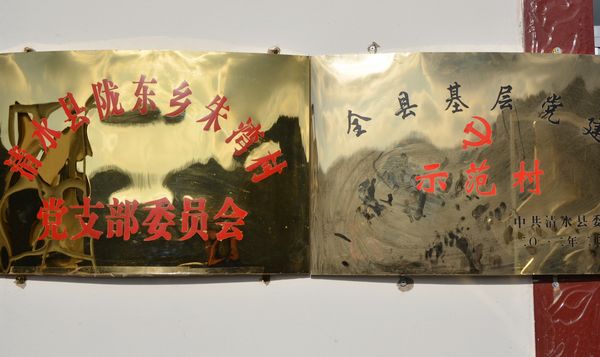 清水县陇东乡朱湾村
党支部委员会
全县基层党建
示范村
中共清水县委
二〇一二年